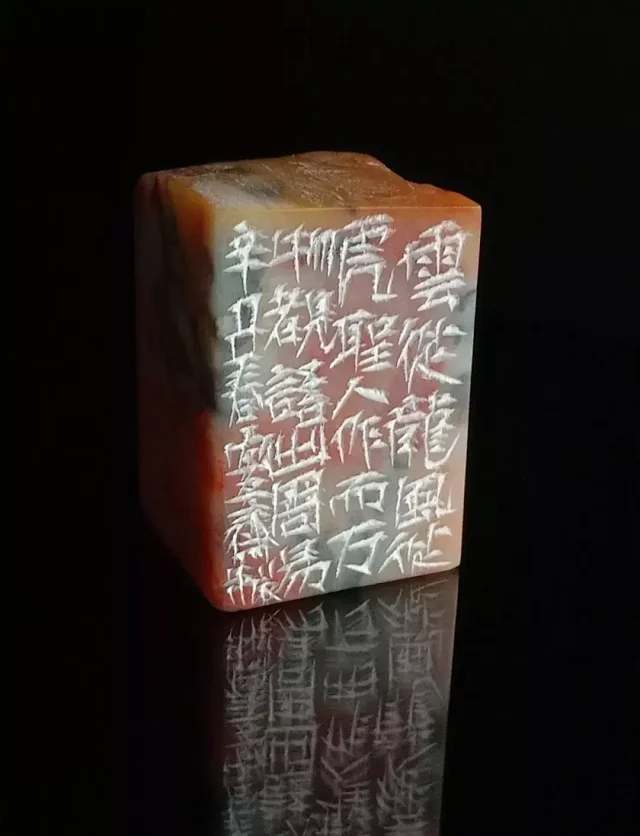 雲從龍風從
虎聖人作而万
物覩語出周易
辛丑春